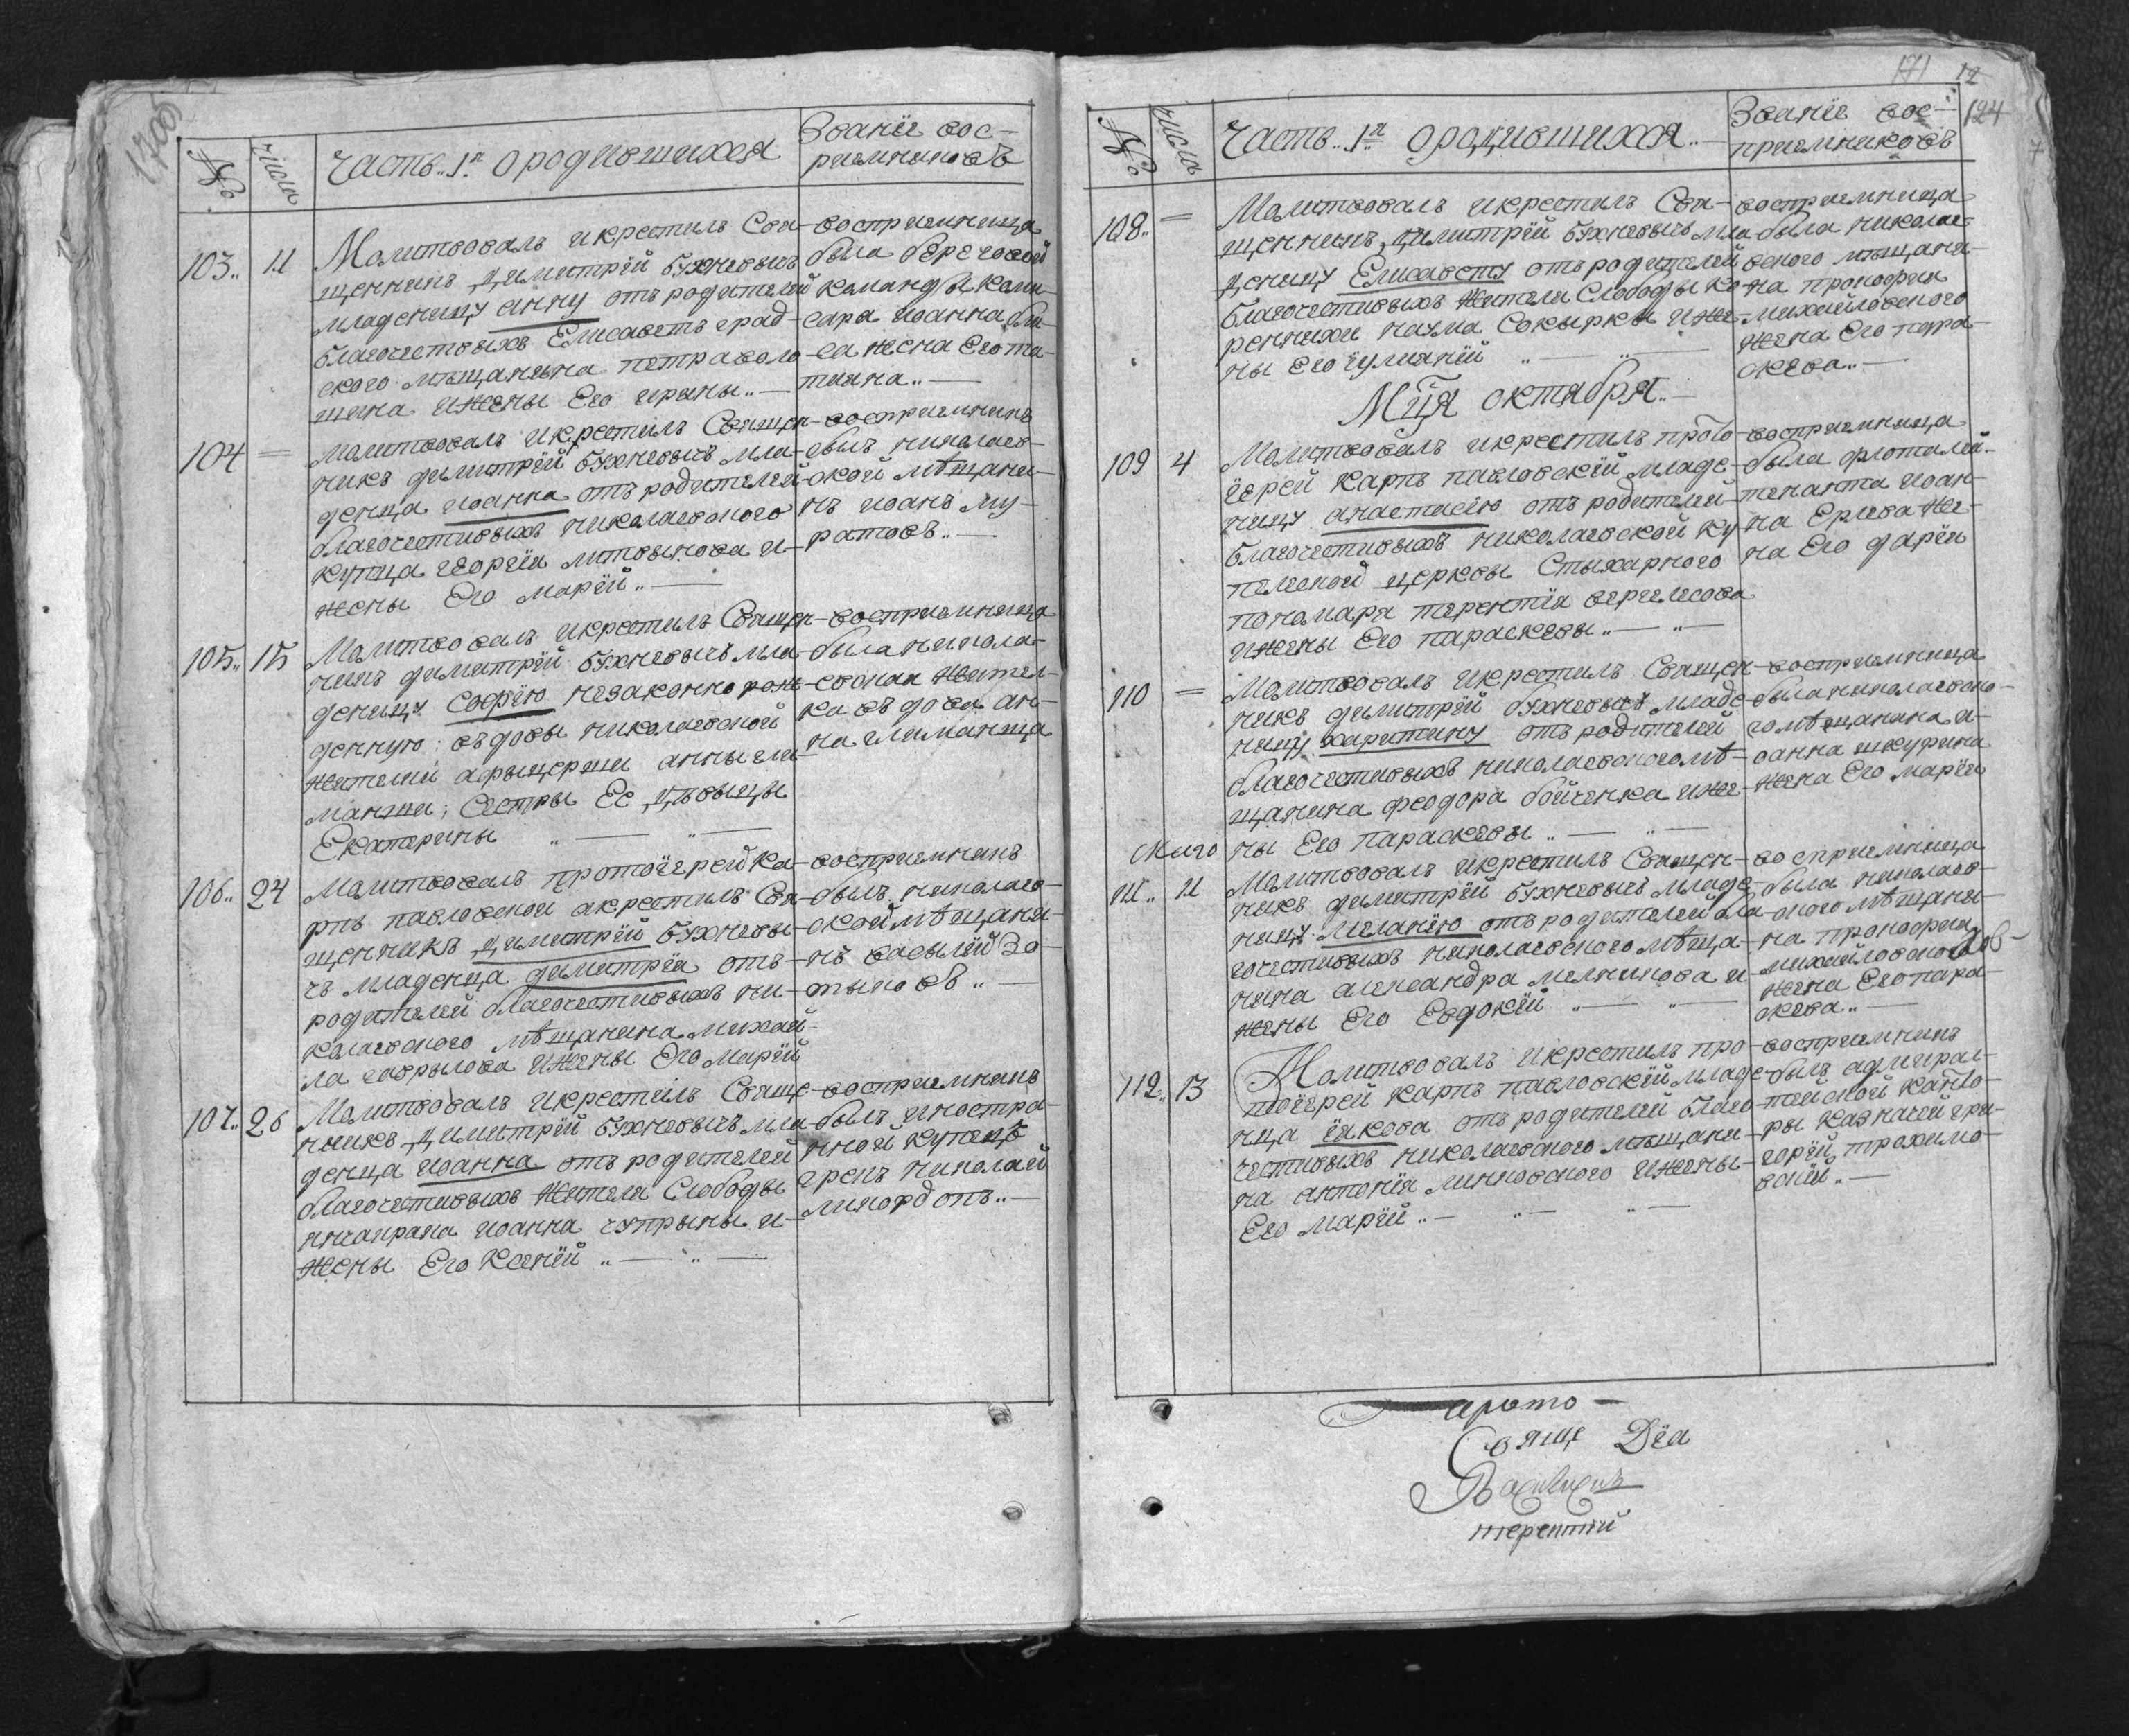 170об
№
число
часть 1я о родившихся
Званіе вос-
риемниковъ
103
11
Молитвовалъ и крестилъ Свя-
щенникъ Димитрїй Бяхневычъ
младеницу анну отъ родителей
благочестивыхъ Елисаветъ град-
ского мѣщанына петра воло-
шина и жены Его ирины
восприемница
была береговой
команды коми-
сара иоанна
жена Его та-
тиана
104
молитвовалъ и крестилъ Священ-
никъ димитрїй Бяхневычъ мла-
денца иоанна отъ родителей
благочестивыхъ николаевского
купца георгїя литвынова и
жены Его марїй
восприемникъ
былъ николаев-
ской мѣщани-
нъ иоанъ му-
ратовъ
105
15
Молитвовалъ и крестилъ Священ-
никъ димитрїй Бяхневычъ мла-
деницу софїю незаконно рож-
денную: въдовы николаевской
жителки афыцерши анны гли-
манши; Сестры Ее дѣвыцы
Екатерины
восприемница
была никола-
евская жител-
ка въдова ан-
на глиманша
106
24
Молитвовалъ протоїерей ка-
рпъ павловской а крестилъ Свя-
щенникъ димитрїй Бяхневы-
чъ младенца димитрїа отъ
родителей благочестивыхъ ни-
колаевского мѣщанина михай-
ла гаврылова и жены Его марїй
восприемникъ
былъ николаев-
ской мѣщани-
нъ васылїй зо-
тыковъ
107
26
Молитвовалъ и крестилъ Свяще-
нникъ димитрїй Бяхневычъ мла-
денца иоанна отъ родителей
благочестивыхъ жителя Слободы
ингаирала иоанна чупрыны и
жены Его Ксенїй
восприемникъ
былъ иностра-
нной купецъ
грекъ николай
ликордопъ
171
12
124
№
число
часть 1я о родившихся
Званіе вос-
приемниковъ
108
Молитвовалъ и крестилъ Свя-
щенникъ димитрїй Бяхневычъ мла-
деницу Елисавету отъ родителей
благочестивыхъ жителя Слободы ко-
ренихи наума Сокырки и же-
ны Его їулианїй
восприемница
была николаев-
ского мѣщани-
на прокофїя
михайловского
жена Его пара-
скева
Мца октября
109
4
Молитвовалъ и крестилъ прото-
їерей карпъ павловскїй младе-
ницу анастасїю отъ родителей
благочестивыхъ николаевской ку-
пелеской церквы Стыхарного
пономаря терентїя вергелесова
и жены Его параскевы
восприемница
была флота лей-
тенанта иоан-
на Ерлева же-
на Его дарїя
110
Молитвовалъ и крестилъ Священ-
никъ димитрїй бяхневычъ младе-
ницу харитину отъ родителей
благочестивыхъ николаевского мѣ-
щанина феодора бойченка и же-
ны Его параскевы
восприемница
была николаевско-
го мѣщанина и-
оанна шкурина
жена Его марїя
111
11
Молитвовалъ и крестилъ Священ-
никъ димитрїй Бяхневычъ младе-
ницу меланїю отъ родителей бла-
гочестивыхъ николаевского мѣща-
нина александра мелникова и
жены Его Евдокїй
восприемница
была николаев-
ского мѣщани-
на прокофїя
михайловского
жена Его пара-
скева
112
13
Молитвовалъ и крестилъ про-
тоїерей карпъ павловскїй младе-
нца їякова отъ родителей благо-
честивыхъ николаевского мѣщани-
на антонїя линковского и жены
Его марїй
восприемникъ
былъ адмирал-
тейской канто-
ры казначей гри-
горїй трохимо-
вскїй
прото
Свяще Дїа
терентїй